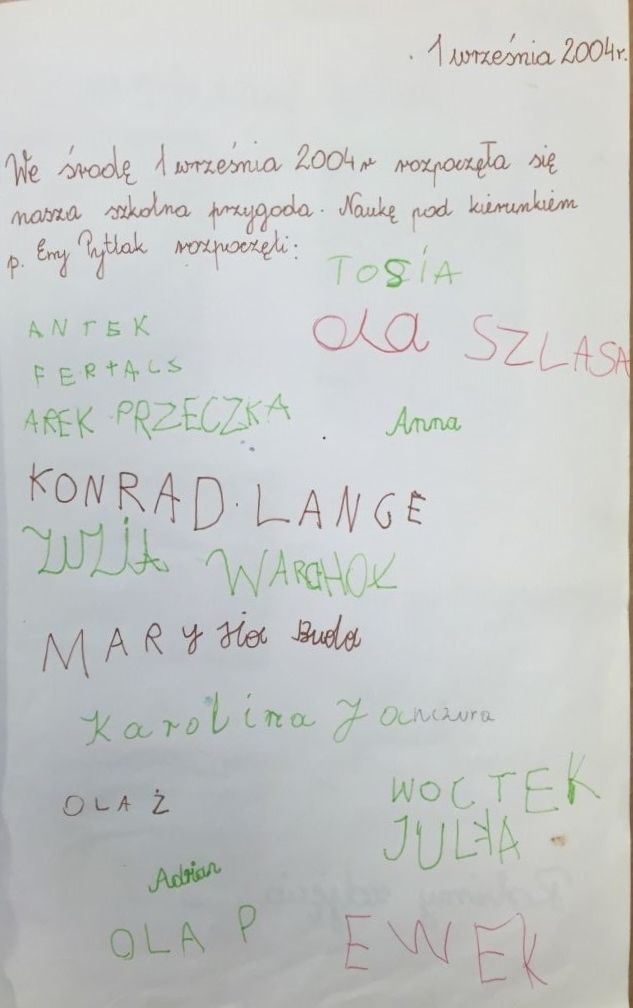 1 września 2004r.
We środę 1 września 2004r rozpoczęła się
nasza szkolna przygoda. Naukę pod kierunkiem
p. Emy Pytlak rozpoczęli:
TOSIA
ANTEK
OLA SZLASA
AREK PRZECZKA
Anna
KONRAD LANGE
ZUZIA WARCHOŁ
MARYsia Buda
Karolina Janczura
OLA Ż
WOCTEK
JULKA
Adrian
OLA P
EWEK